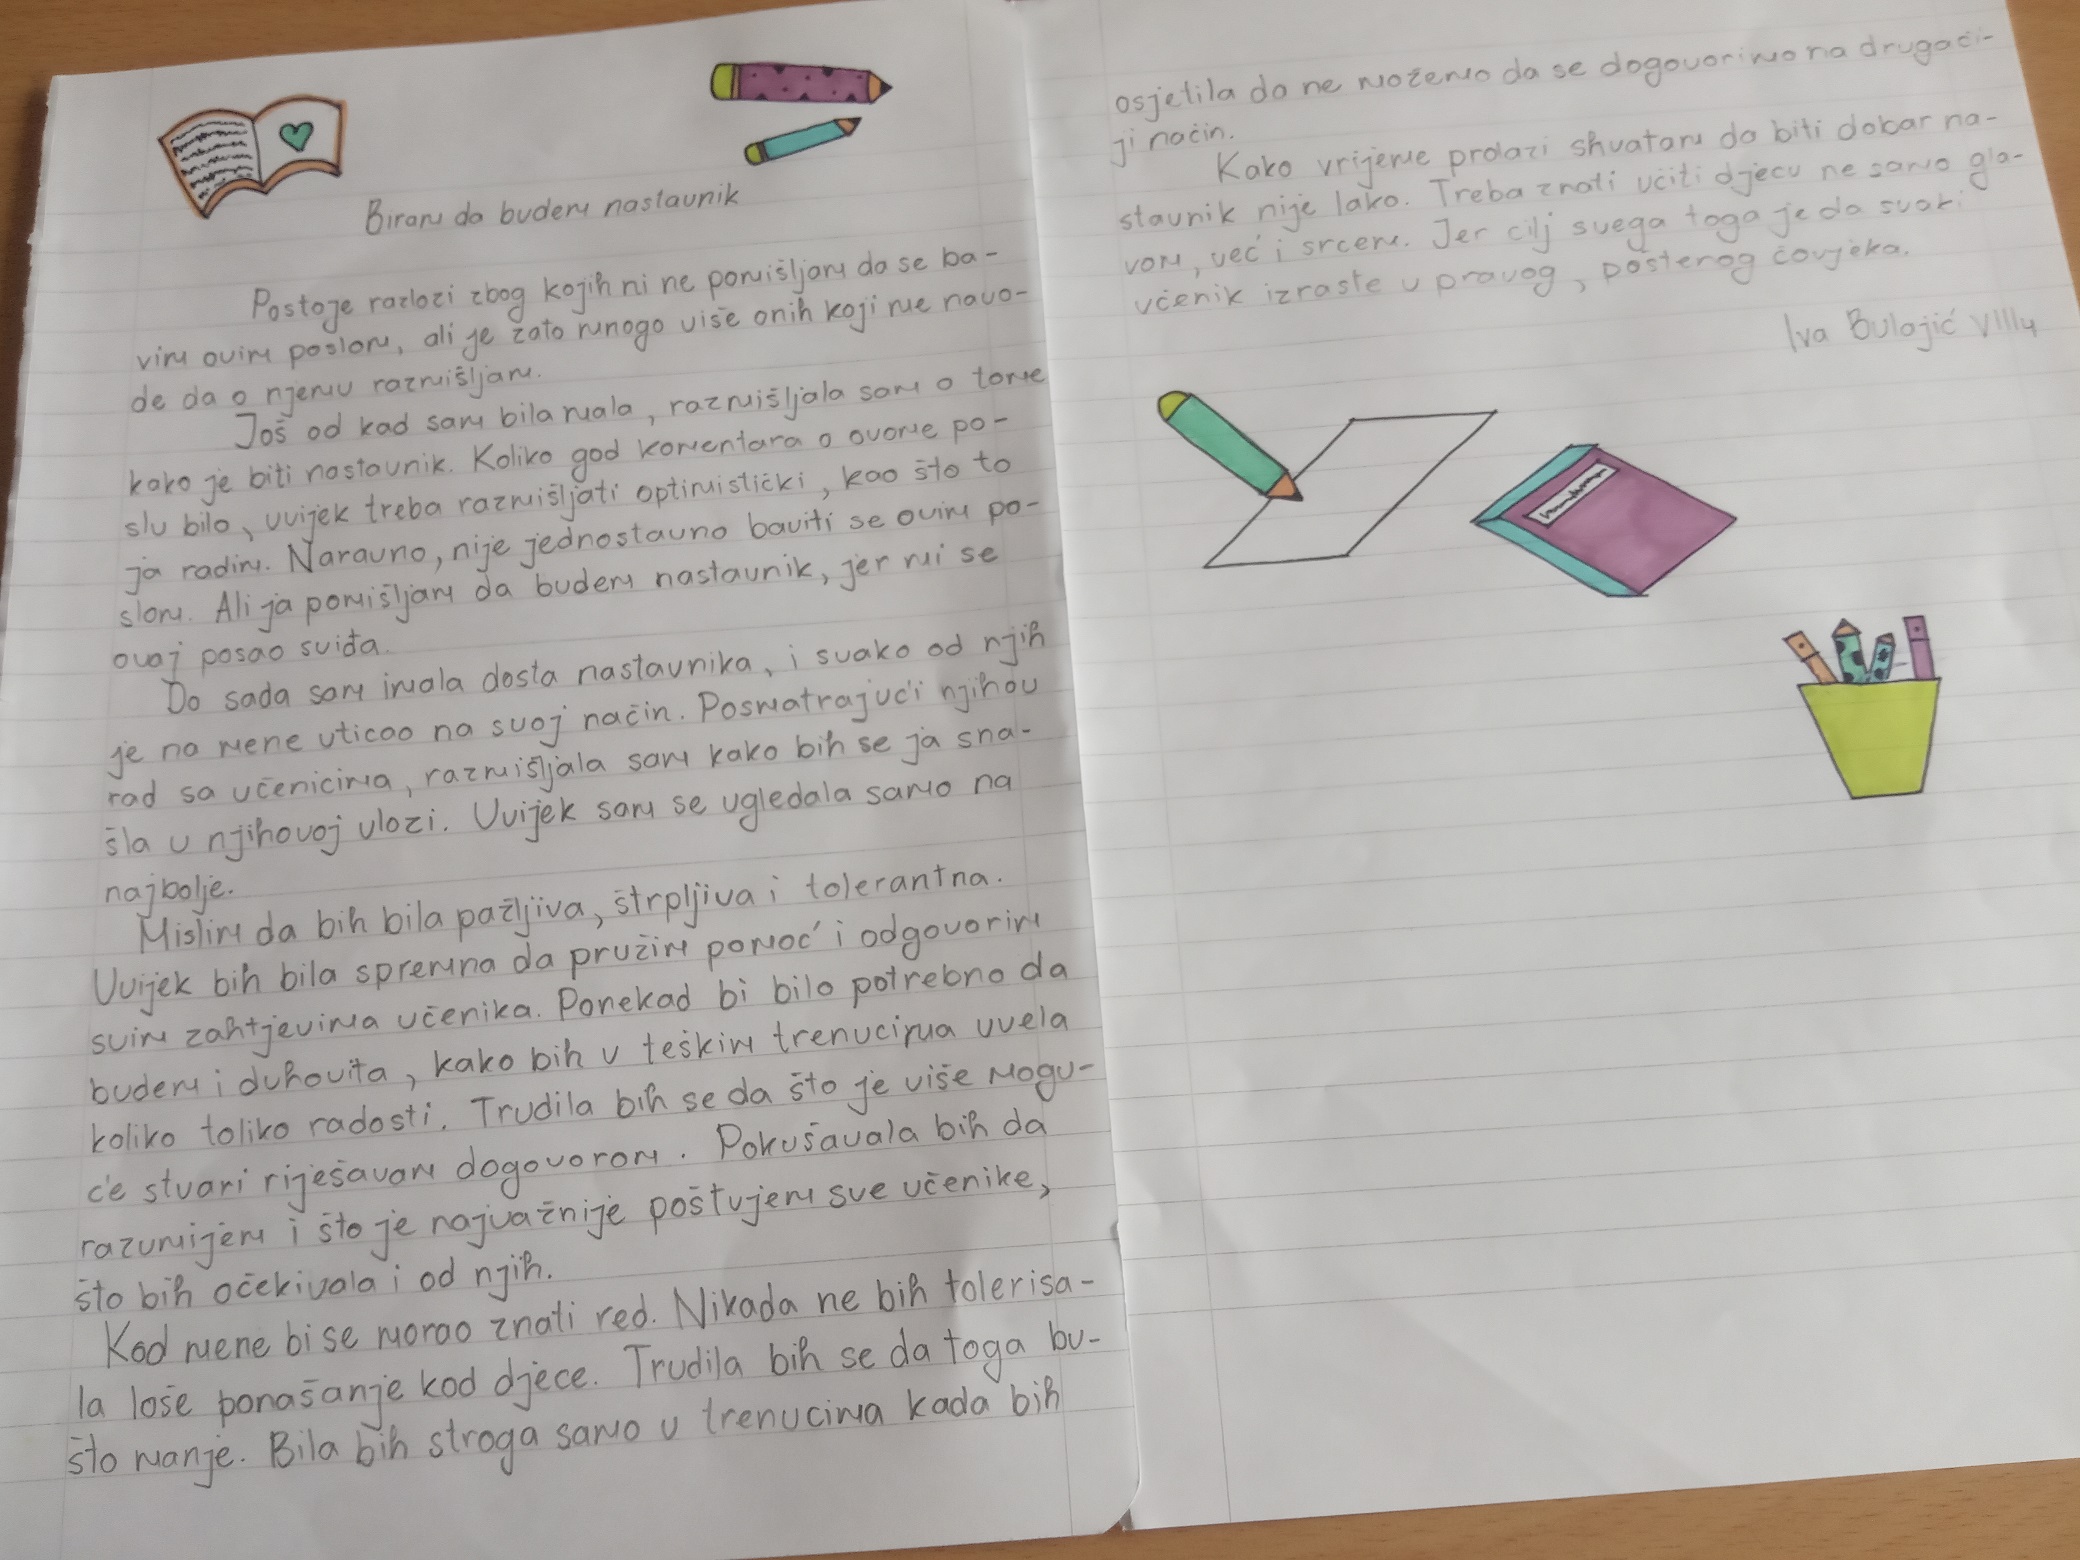 Biram da budem nastavnik
Postoje razlozi zbog kojih ni ne pomišljam da se ba-
vim ovim poslom, ali je zato mnogo više onih koji me navo-
de da o njemu razmišljam.
Još od kad sam bila mala, razmišljala sam o tome
kako je biti nastavnik. Koliko god komentara o ovome po-
slu bilo, uvijek treba razmišljati optimistički, kao što to
ja radim. Naravno, nije jednostavno baviti se ovim po-
slom. Ali ja pomišljam da budem nastavnik, jer mi se
ovaj posao sviđa.
Do sada sam imala dosta nastavnika, i svako od njih
je na mene uticao na svoj način. Posmatrajući njihov
rad sa učenicima, razmišljala sam kako bih se ja sna-
šla u njihovoj ulozi. Uvijek sam se ugledala samo na
najbolje.
Mislim da bih bila pažljiva, štrpljiva i tolerantna.
Uvijek bih bila spremna da pružim pomoć i odgovorim
svim zahtjevima učenika. Ponekad bi bilo potrebno da
budem i duhovita, kako bih u teškim trenucima uvela
koliko toliko radosti. Trudila bih se da što je više mogu-
će stvari riješavam dogovorom. Pokušavala bih da
razumijem i što je najvažnije poštujem sve učenike,
što bih očekivala i od njih.
Kod mene bi se morao znati red. Nikada ne bih tolerisa-
la loše ponašanje kod djece. Trudila bih se da toga bu-
što manje. Bila bih stroga samo u trenucima kada bih
osjetila da ne možemo da se dogovorimo na drugači-
ji način.
Kako vrijeme prolazi shvatam da biti dobar na-
stavnik nije lako. Treba znati učiti djecu ne samo gla-
vom, već i srcem. Jer cilj svega toga je da svaki
učenik izraste u pravog, poštenog čovjeka.
Iva Bulajić VIII4